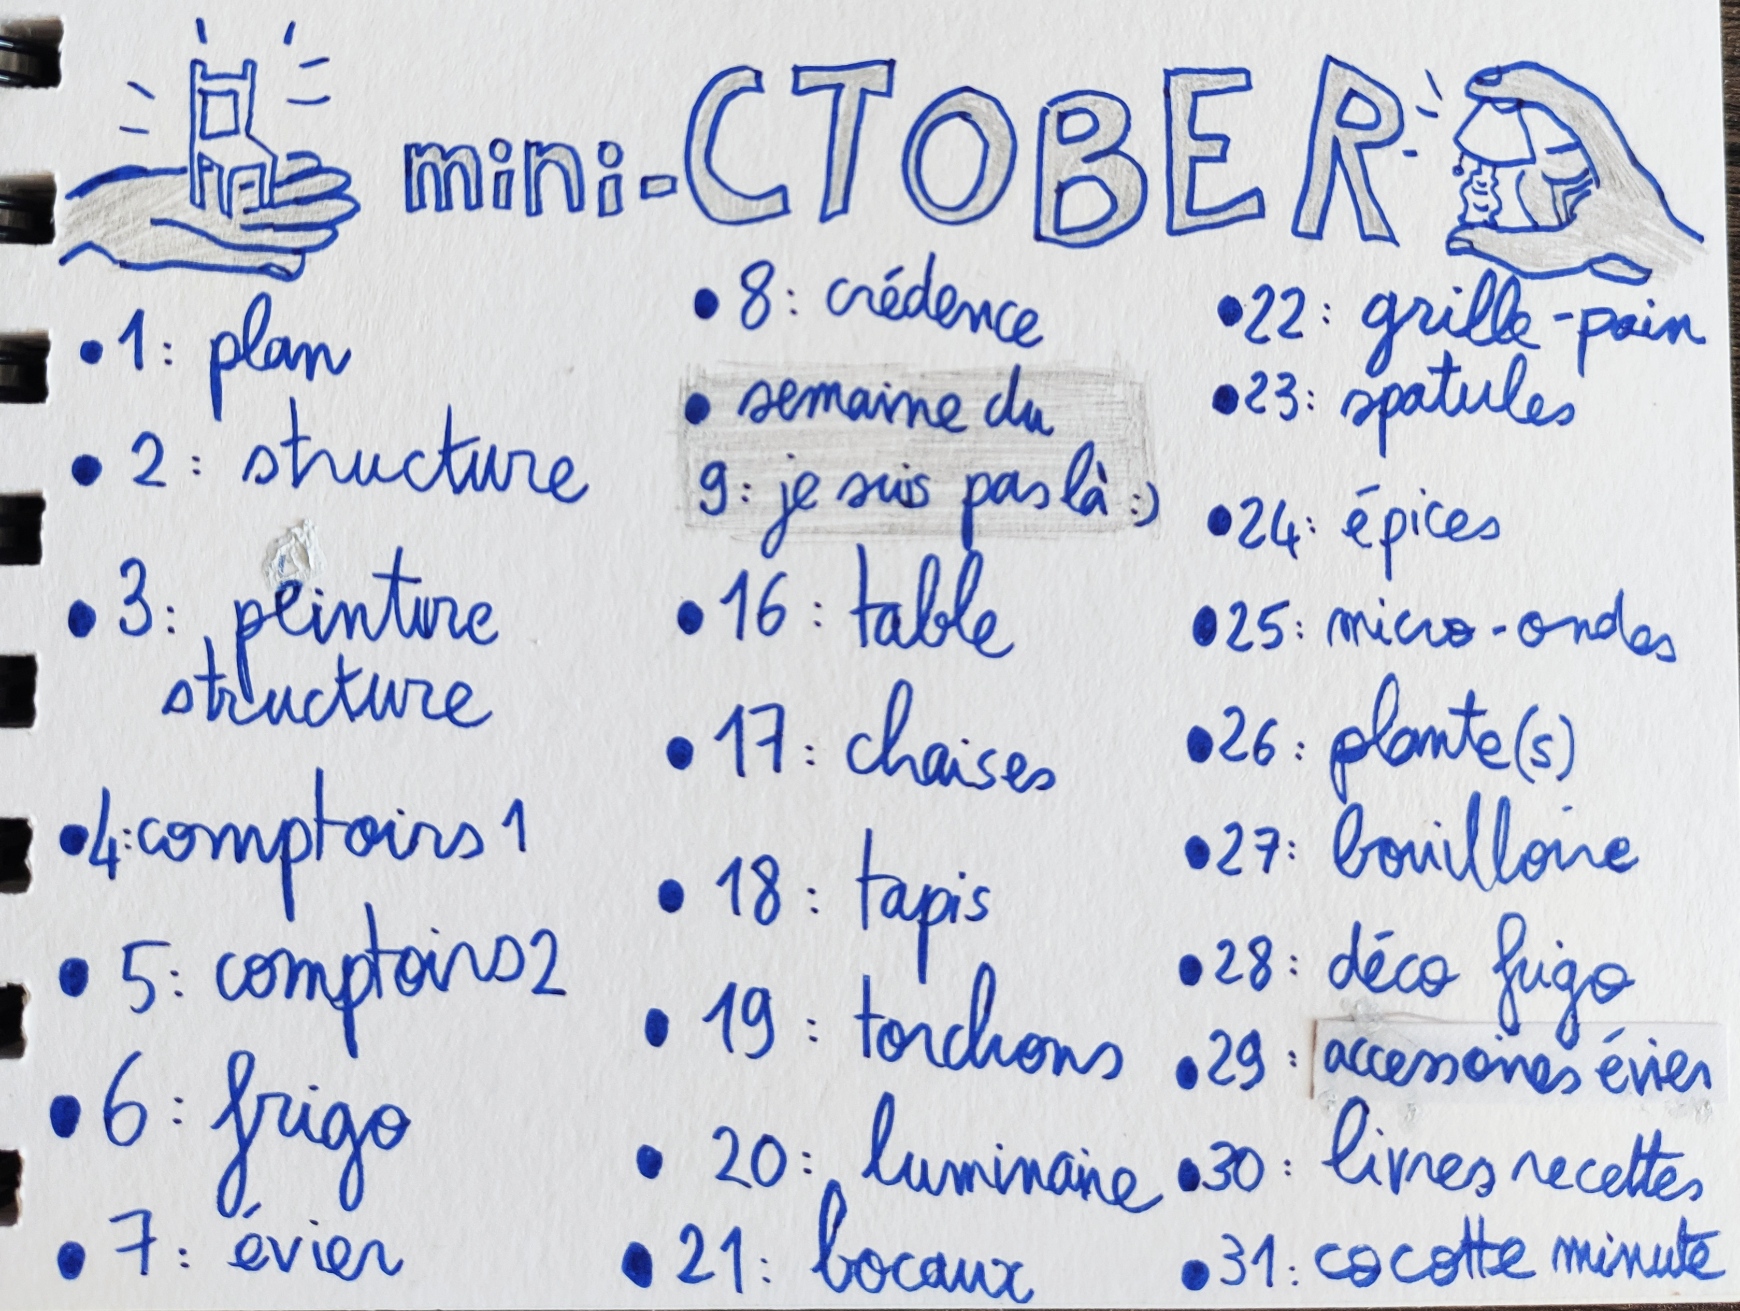 mini-CTOBER
• 1: plan
• 2: structure
• 3: peinture
structure
• 4: comptoirs 1
• 5: comptoirs 2
• 6: frigo
• 7: évier
• 8: crédence
• semaine du
9: je suis pas là :)
• 16: table
• 17: chaises
• 18: tapis
• 19: torchons
• 20: luminaire
• 21: bocaux
• 22: grille-pain
• 23: spatules
• 24: épices
• 25: micro-ondes
• 26: plante(s)
• 27: bouilloire
• 28: déco frigo
• 29: accessoires évier
• 30: livres recettes
• 31: cocotte minute